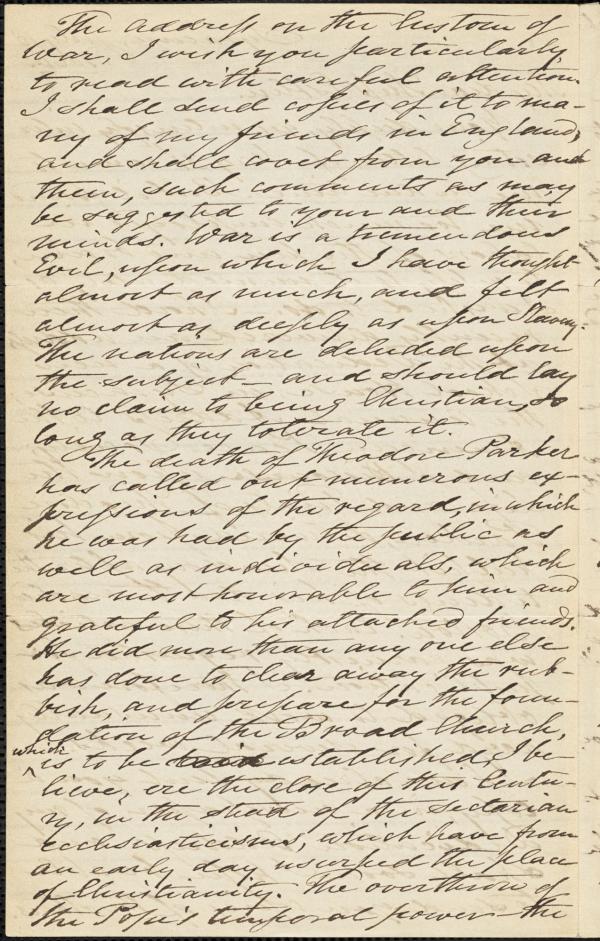 The address on the Custom of
War, I wish you particularly
to read with careful attention.
I shall send copies of it to ma-
ny of my friends in England,
and shall covet from you and
them, such comments as may
be suggested to your and their
minds. War is a tremendous
Evil, upon which I have thought
almost as much, and felt
almost as deeply as upon Slavery.
The nations are deluded upon
the subject — and should lay
no claim to being Christian, so
long as they tolerate it.
The death of Theodore Parker
has called out numerous ex-
pressions of the regard, in which
he was had by the public as
well as individuals, which
are most honorable to him and
grateful to his attached friends.
He did more than any one else
has done to clear away the rub-
bish, and prepare for the foun-
dation of the Broad Church,
which
is to be established, I be-
lieve, ere the close of this Centu-
ry, in the stead of the sectarian
ecclesiasticisms, which have from
an early day usurped the place
of Christianity. The overthrow of
the Pope's temporal power — the